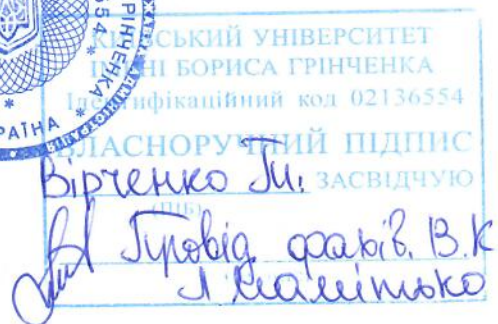 КИЇВСЬКИЙ УНІВЕРСИТЕТ
ІМЕНІ БОРИСА ГРІНЧЕНКА
Ідентифікаційний код 02136554
ВЛАСНОРУЧНИЙ ПІДПИС
Вірченко Т.І. ЗАСВІДЧУЮ
(ПІБ)
Провід фахів. В.К